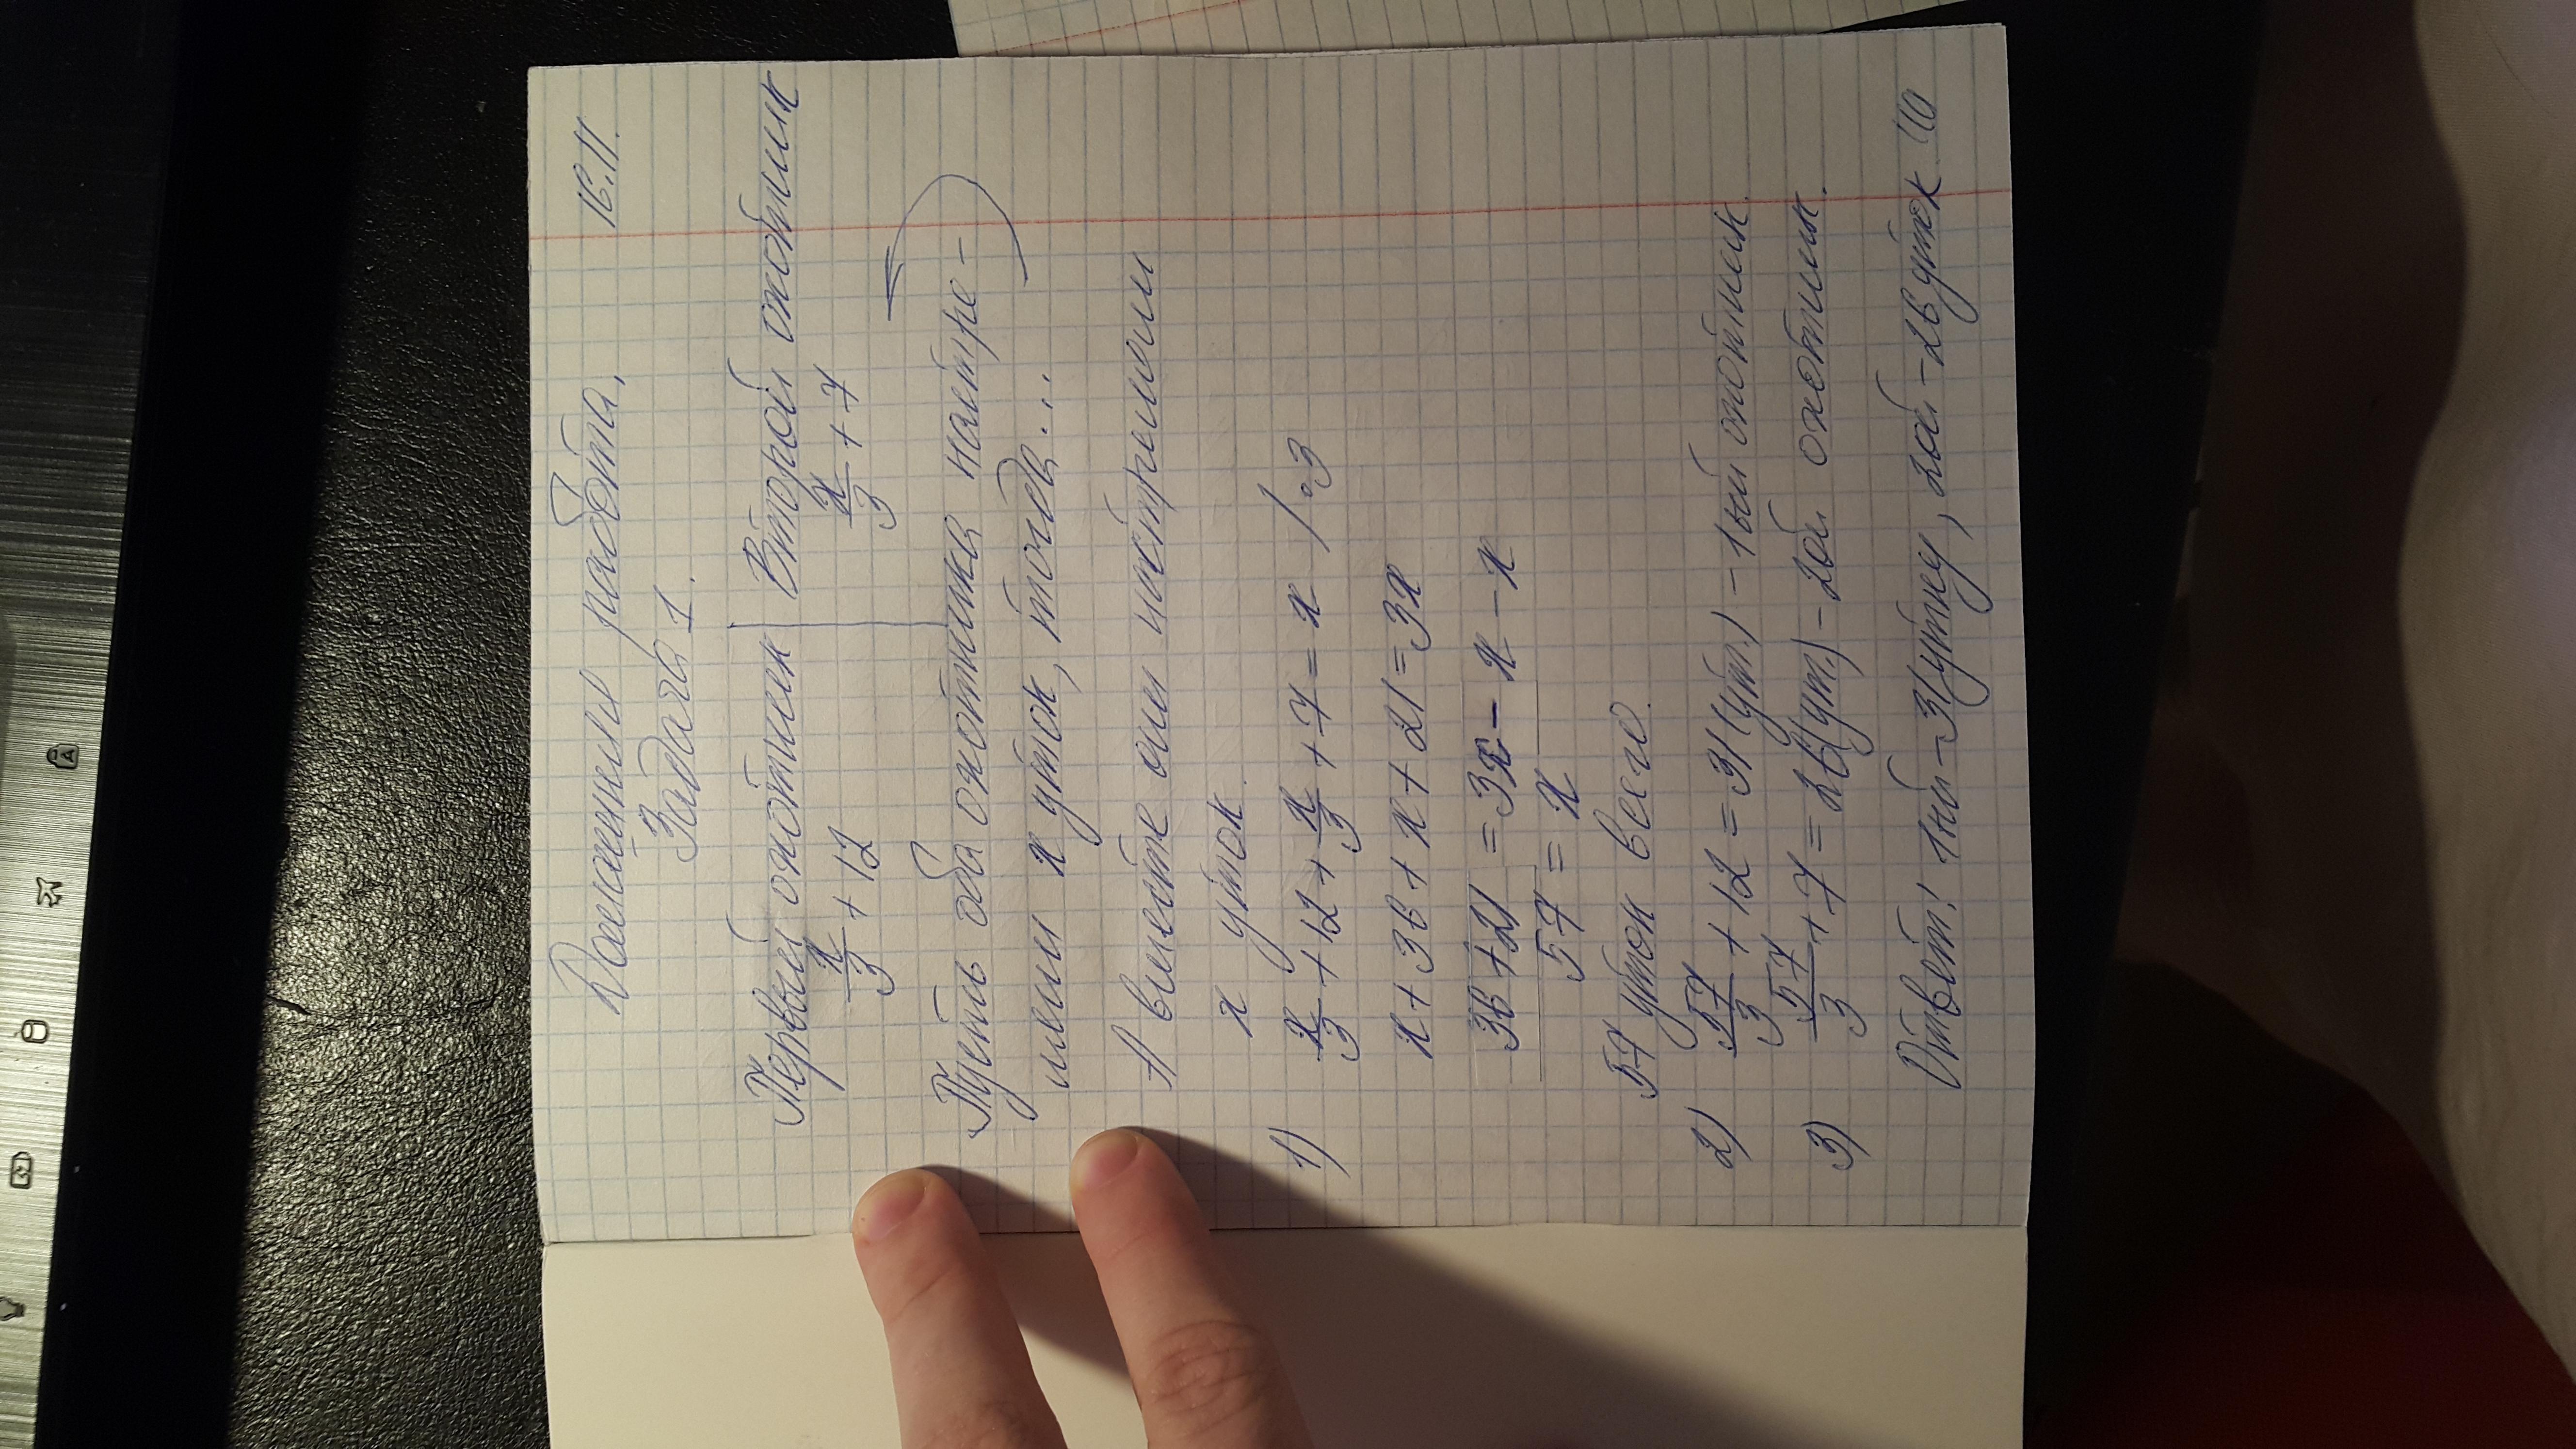 16.11.
Домашняя работа.
Задача 1.
Первый охотник | Второй охотник
x/3 + 12 x/3 + 7
Пусть оба охотника настре-
лили x уток, тогда...
А вместе они настреляли
x уток.
1) x/3 + 12 + x/3 + 7 = x / ·3
x + 36 + x + 21 = 3x
36 + 21 = 3x - x - x
57 = x
57 уток всего.
2) 57/3 + 12 = 31 (ут.) - 1ый охотник.
3) 57/3 + 7 = 26 (ут.) - 2ой охотник.
Ответ: 1ый - 31 утку, 2ой - 26 уток.